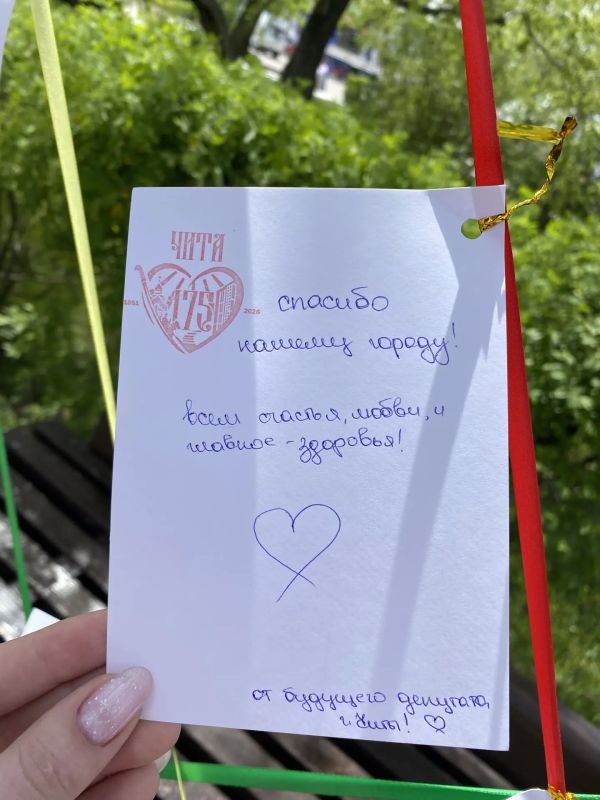 ЧИТА
175
1851 2026
спасибо
нашему городу!
всем счастья, любви, и
главное - здоровья!
от будущего депутата
г. Читы!